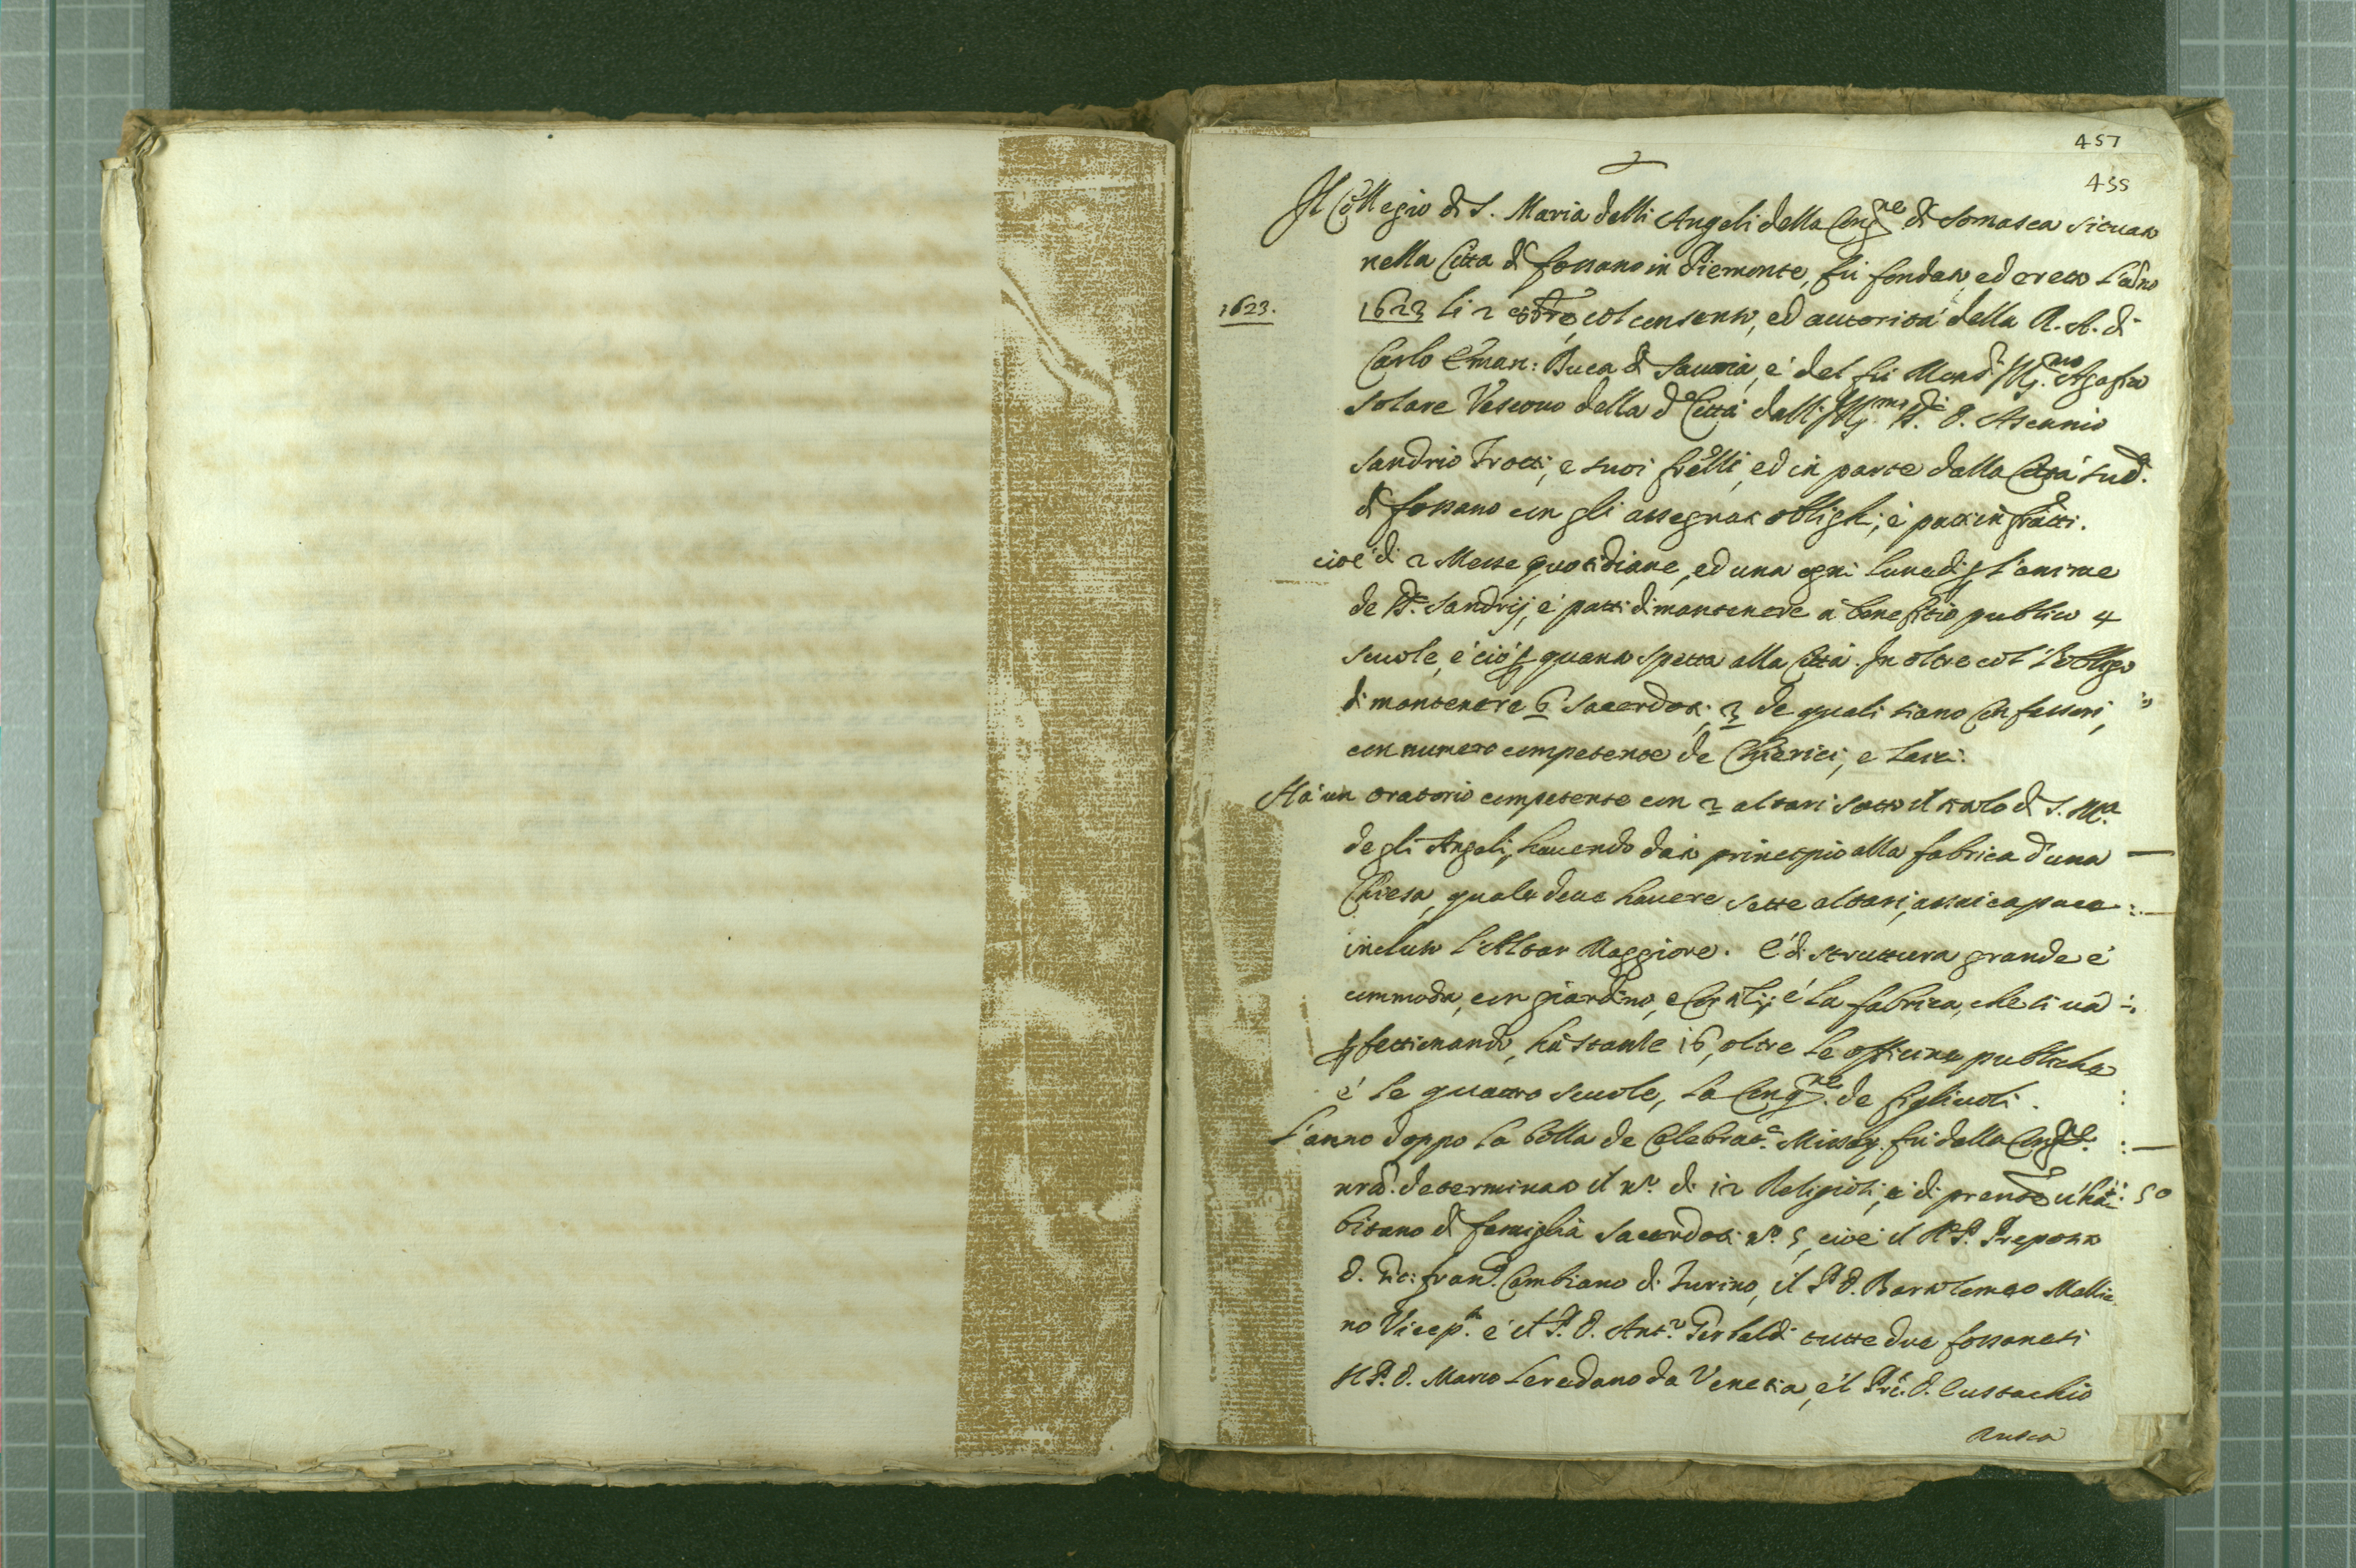 457
455
Il Collegio di S. Maria delli Angeli della Cong.ne di Somasca situato
nella Citta di fossano in Piemonte, fù fondato, ed eretto l'año
1623.
1623 li 2 8bre, col consenso, ed autorità della R. A. di
Carlo Eman: Duca di Sauoia, e' del fù Mons.r Ill.mo Agaffio
Solare Vescouo della d.a Città dalli Ill.mi SS.ri D. Ascanio
Sandrio Trotti, e suoi frelli, ed in parte dalla Città sud.a
di fossano con gli assegnati oblighi, e' patti infratti.
cioe' di 2 Messe quotidiane, ed una ogni lunedi p l'anime
de SS.ri Sandrij, e' patti di mantenere a' benefitio publico 4
scuole, e' ciò p quanto spetta alla Città. In oltre col l'obligo
di mantenere 6 Sacerdoti, 3 de quali siano Confessori,
con numero competente de Chierici, e Laici.
Hà un oratorio competente con 2 altari sotto il titolo di S. M.a
degli Angeli, hauendo dato principio alla fabrica d'una
Chiesa, quale deue hauere sette altari, assai capace
incluso l'Altar Maggiore. E' di struttura grande e'
commoda, con giardino, e Cortili; e' la fabrica, che si uà
pfettionando, hà stanze 16, oltre le officine publiche
e' le quattro scuole, la Cong.ne de figliuoli.
L'anno doppo la bolla de Celebrat.e Missar. fù dalla Cong.ne
nrã. determinato il n.o di 12 Religiosi, e' di prente u'ha-
50
bitano di famiglia Sacerdoti n.o 5, cioe' il R.P. Preposto
D. Gio: Fran.co Cambiano di Turino, il P. D. Bartolomeo Mallia
no Vicep.to e' il P. D. Ant.o Gerbaldi tutte due fossanesi
Il P. D. Marco Loredano da Venetia, e'l Prẽ. D. Eustachio
Rusca